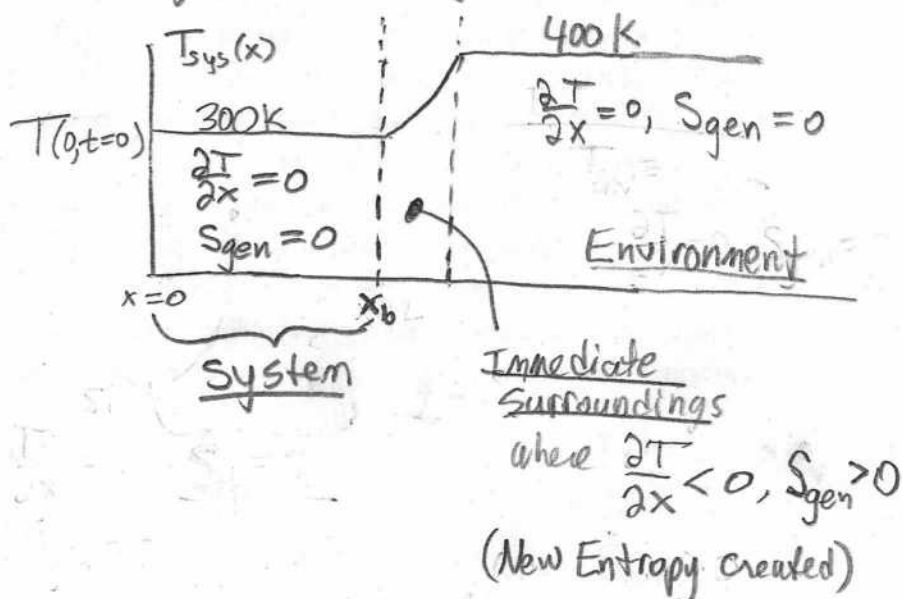 T_sys(x)
400K
300K
T(0,t=0)
∂T/∂x = 0, Sgen = 0
∂T/∂x = 0
Sgen = 0
Environment
x=0
x_b
System
Immediate
Surroundings
where ∂T/∂x < 0, Sgen > 0
(New Entropy created)